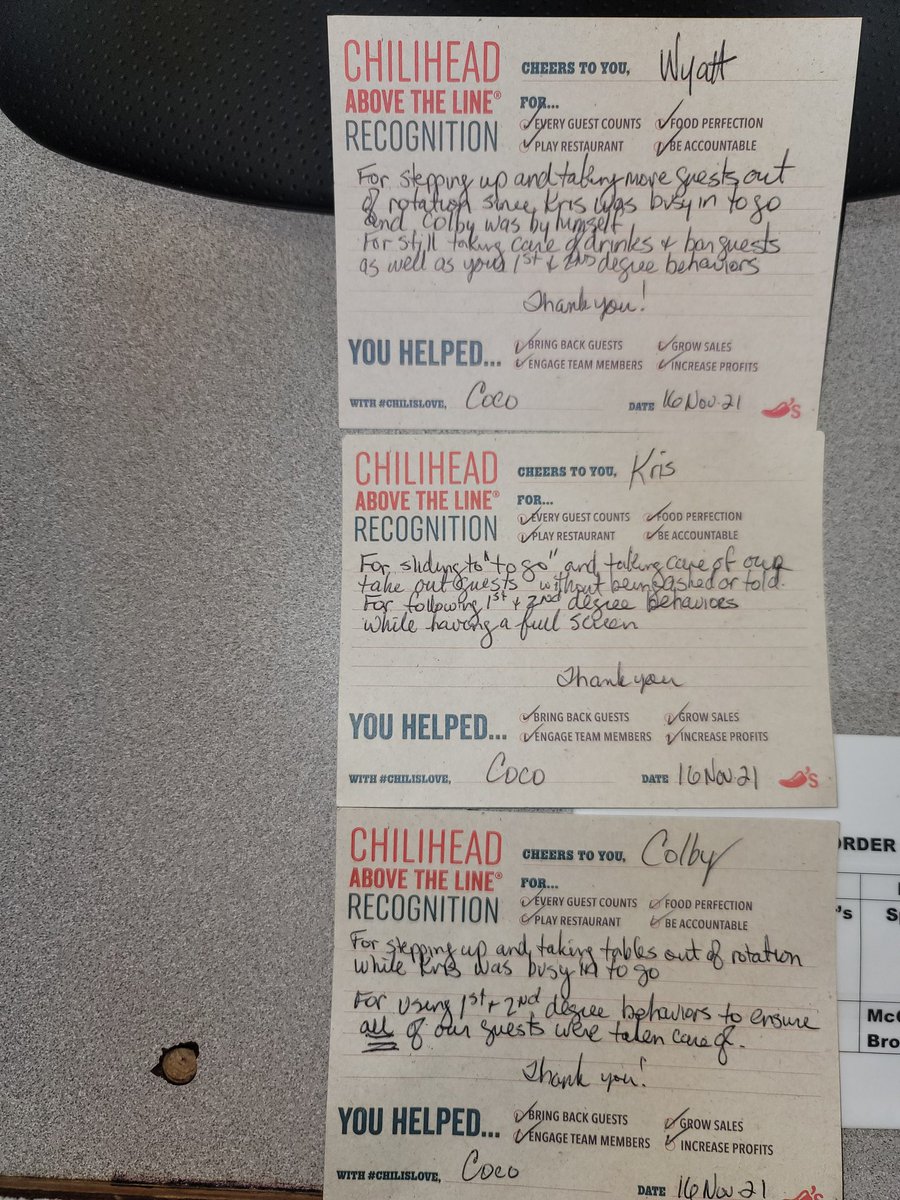 CHILIHEAD
ABOVE THE LINE®
RECOGNITION
CHEERS TO YOU, Wyatt
FOR...
EVERY GUEST COUNTS FOOD PERFECTION
PLAY RESTAURANT BE ACCOUNTABLE
For stepping up and taking more guests out
of rotation since Kris was busy in to go
and Colby was by himself
For still taking care of drinks + bar guests
as well as your 1st + 2nd degree behaviors
Thank you!
YOU HELPED...
BRING BACK GUESTS GROW SALES
ENGAGE TEAM MEMBERS INCREASE PROFITS
WITH #CHILISLOVE, Coco DATE 16 Nov. 21 's
CHILIHEAD
ABOVE THE LINE®
RECOGNITION
CHEERS TO YOU, Kris
FOR...
EVERY GUEST COUNTS FOOD PERFECTION
PLAY RESTAURANT BE ACCOUNTABLE
For sliding to "to go" and taking care of our
take out guests without being asked or told.
For following 1st + 2nd degree behaviors
while having a full screen
Thank you
YOU HELPED...
BRING BACK GUESTS GROW SALES
ENGAGE TEAM MEMBERS INCREASE PROFITS
WITH #CHILISLOVE, Coco DATE 16 Nov. 21 's
CHILIHEAD
ABOVE THE LINE®
RECOGNITION
CHEERS TO YOU, Colby
FOR...
EVERY GUEST COUNTS FOOD PERFECTION
PLAY RESTAURANT BE ACCOUNTABLE
For stepping up and taking tables out of rotation
while Kris was busy in to go
For using 1st + 2nd degree behaviors to ensure
all of our guests were taken care of.
Thank you!
YOU HELPED...
BRING BACK GUESTS GROW SALES
ENGAGE TEAM MEMBERS INCREASE PROFITS
WITH #CHILISLOVE, Coco DATE 16 Nov. 21 's
ORDER
's